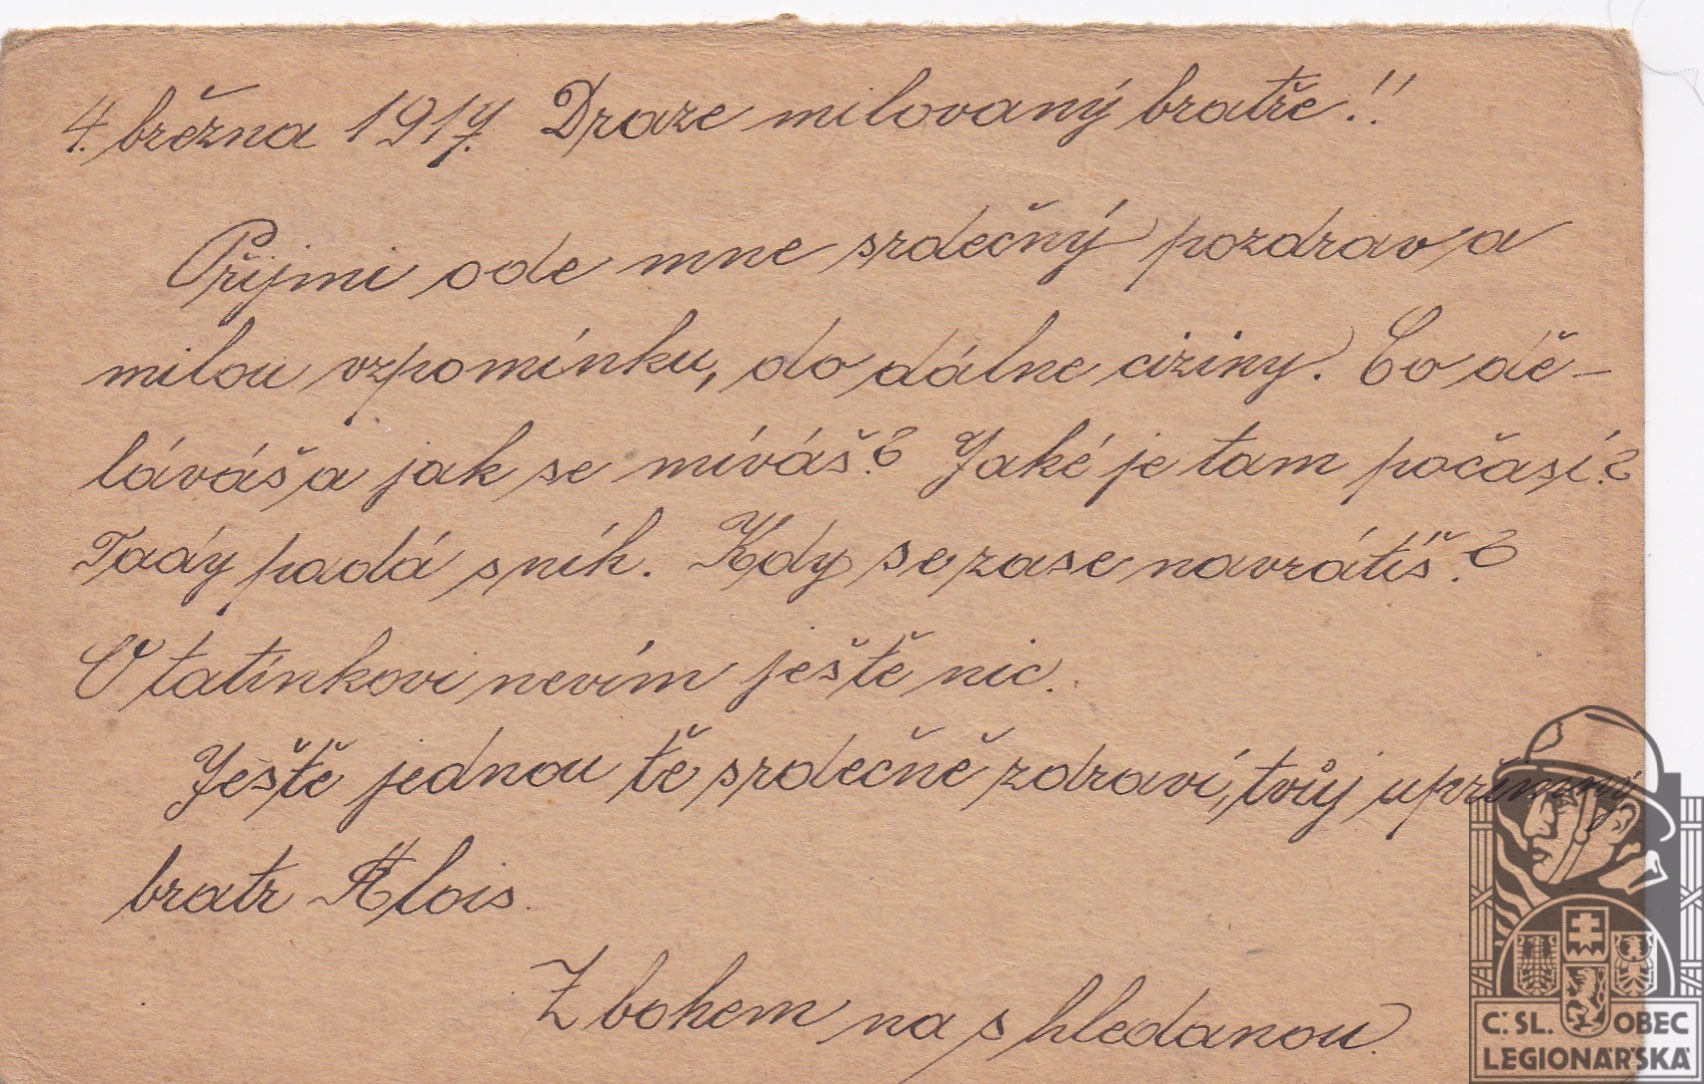 4. března 1917. Draze milovaný bratře!!
Přijmi ode mne srdečný pozdrav a
milou vzpomínku, do dálne ciziny. Co dě-
láváš a jak se míváš? Jaké je tam počasí?
Tady padá sníh. Kdy se zase navrátíš?
O tatínkovi nevím ještě nic.
Ještě jednou tě srdečně zdraví, tvůj upřímný
bratr Alois.
Z bohem na shledanou.
Č. SL. OBEC
LEGIONÁŘSKÁ